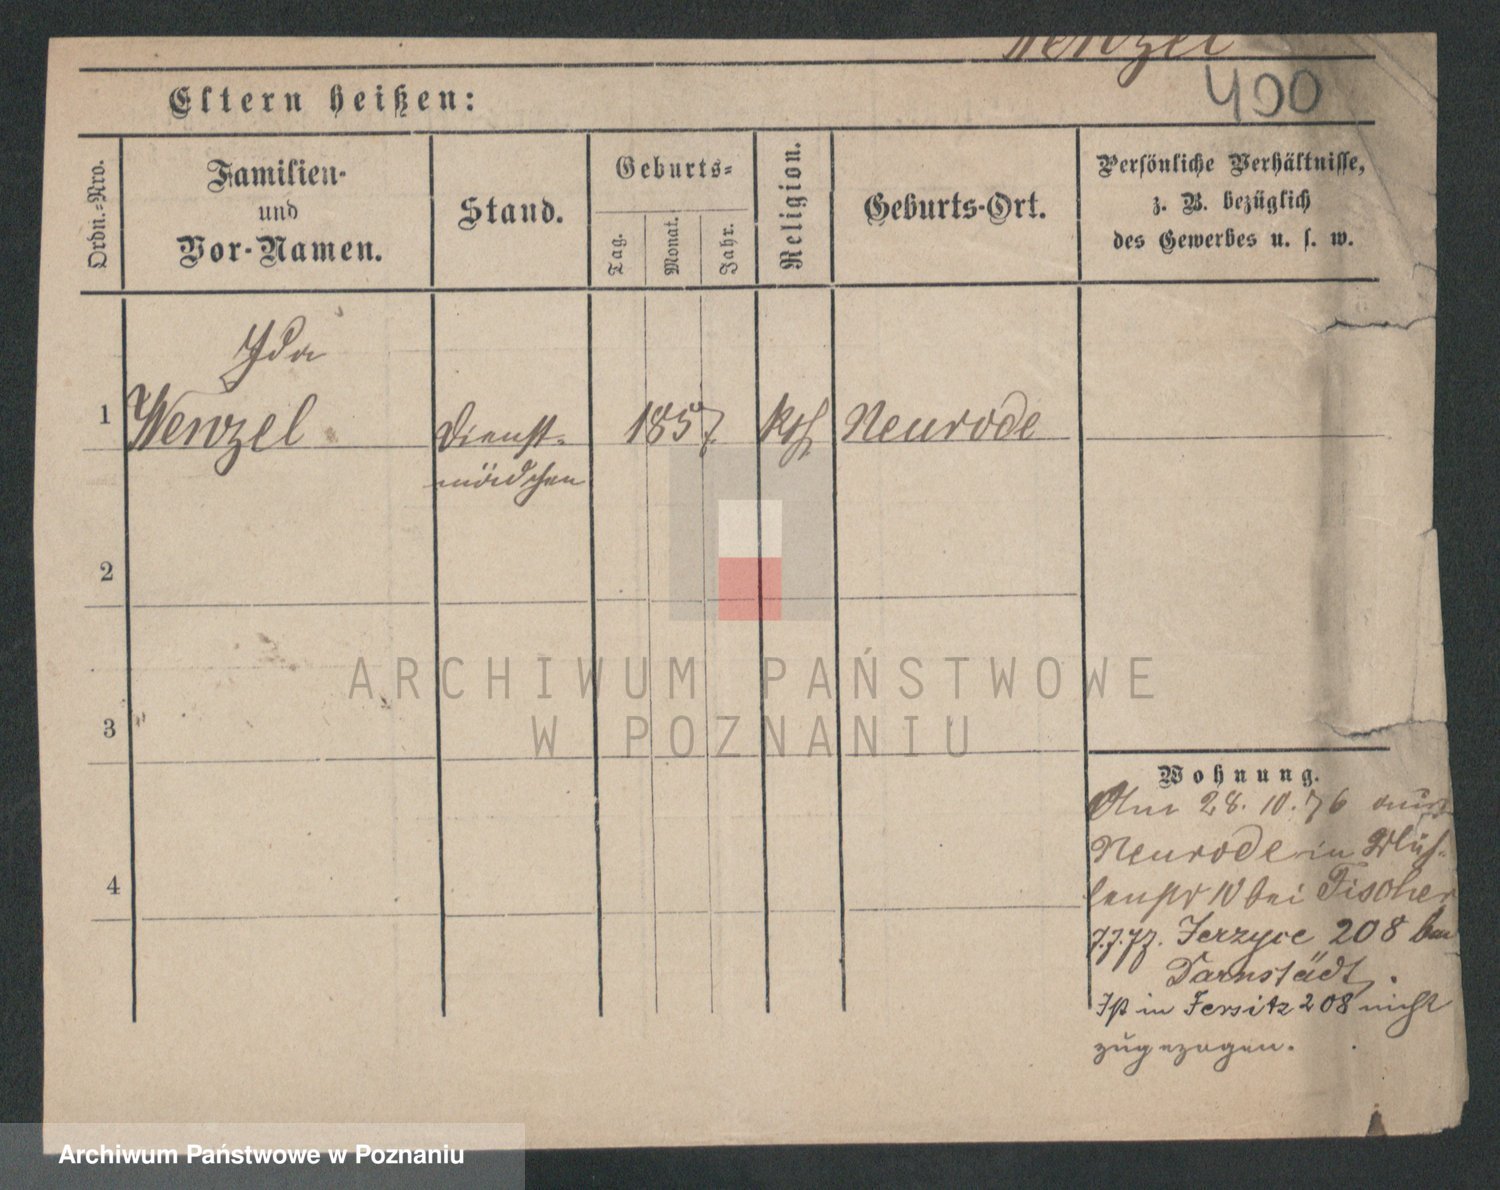 Wenzel
400
Eltern heißen:
Ordn.-Nro.
Familien-
und
Vor-Namen.
Stand.
Geburts-
Tag.
Monat.
Jahr.
Religion.
Geburts-Ort.
Persönliche Verhältnisse,
z. B. bezüglich
des Gewerbes u. s. w.
Ida
1 Wenzel Dienst- 1857 kth Neurode
mädchen
2
3
4
ARCHIWUM PAŃSTWOWE
W POZNANIU
Wohnung.
Am 28. 10. 76 aus
Neurode in Müh-
lenstr 10 bei Fischer
7.7.77. Jerzyce 208 bei
Darnstädt.
Ist in Jersitz 208 nicht
zugezogen.
Archiwum Państwowe w Poznaniu